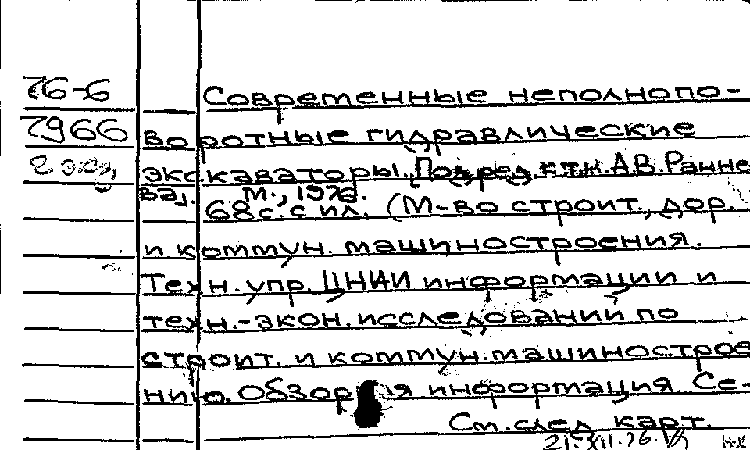 76-6
Современные неполнопо-
7966
воротные гидравлические
2 экз,
экскаваторы. Под ред. к.т.н. А.В. Ранне
ва]. М., 1976.
68 с. с ил. (М-во строит., дор.
и коммун. машиностроения.
Техн. упр. ЦНИИ информации и
техн.-экон. исследований по
строит. и коммун. машиностроe
нию. Обзорная информация. Се-
См. след карт.
21.XII.76.